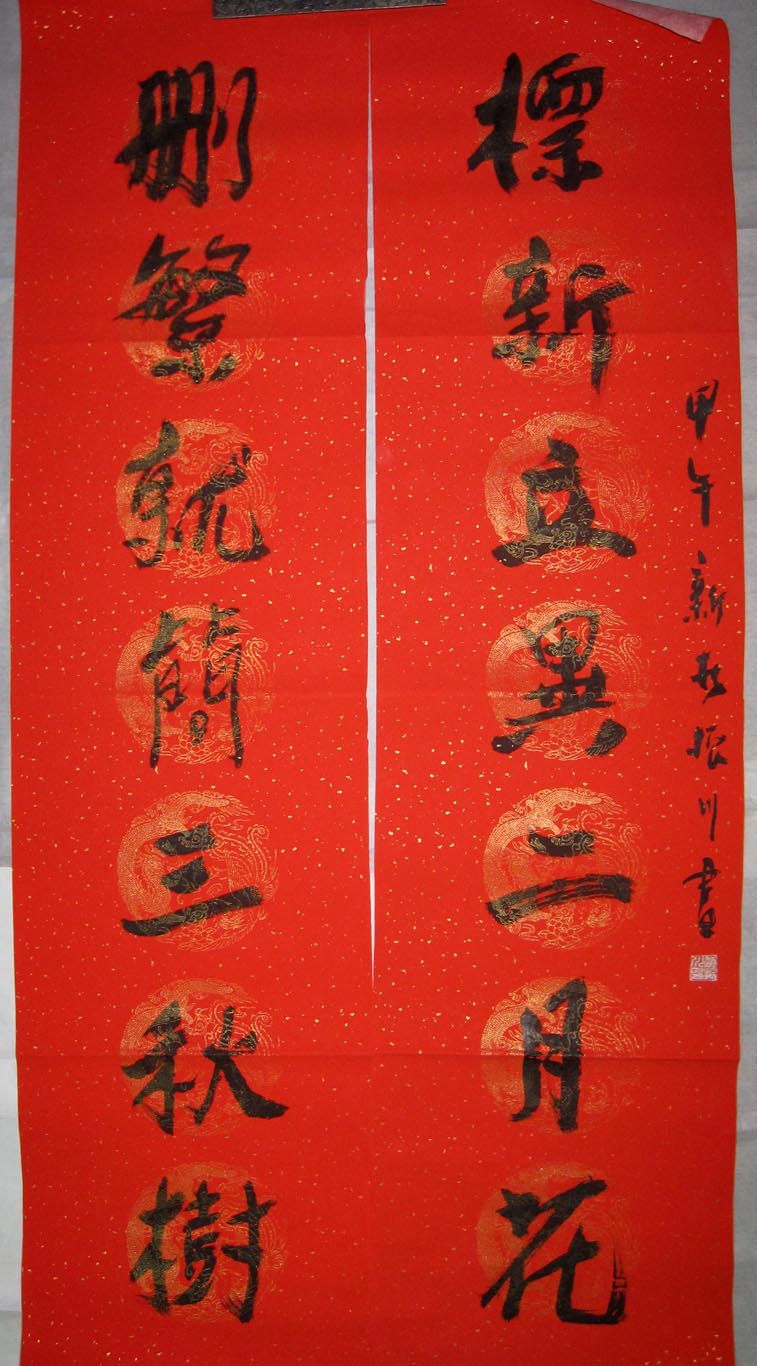 甲午新秋振川書
標新立異二月花
刪繁就簡三秋樹